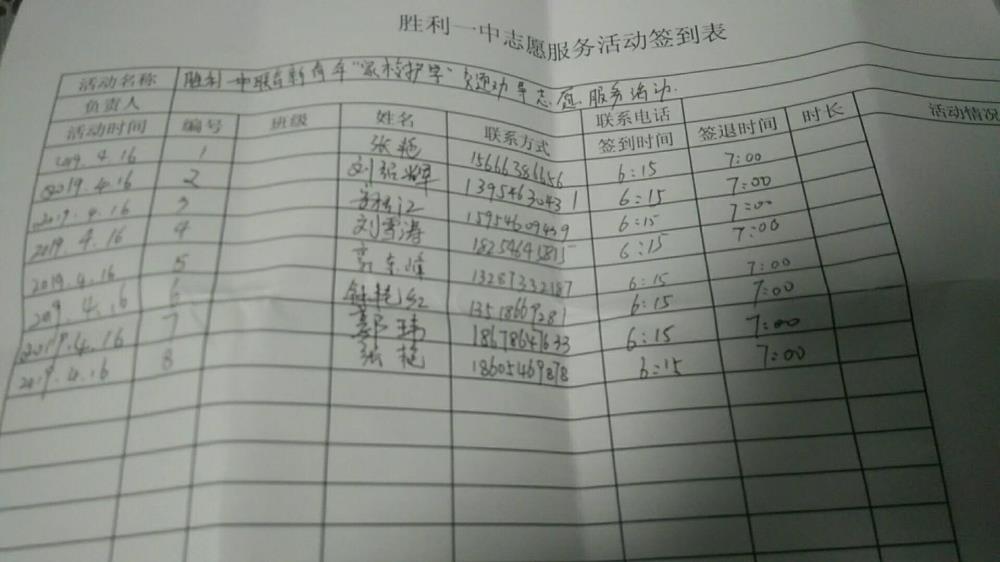 胜利一中志愿服务活动签到表
活动名称 胜利一中 "家校护学" 交通劝导志愿服务活动
负责人 联系电话
活动时间 编号 班级 姓名 联系方式 签到时间 签退时间 时长 活动情况
2019.4.16 1 张艳 15666386656 6:15 7:00
2019.4.16 2 13954630431 6:15 7:00
2019.4.16 3 15954609439 6:15 7:00
2019.4.16 4 刘雪涛 6:15 7:00
2019.4.16 5 13287332187 6:15 7:00
2019.4.16 6 钟艳红 13518669281 6:15 7:00
2019.4.16 7 郭玮 18678647633 6:15 7:00
2019.4.16 8 张艳 18605469878 6:15 7:00